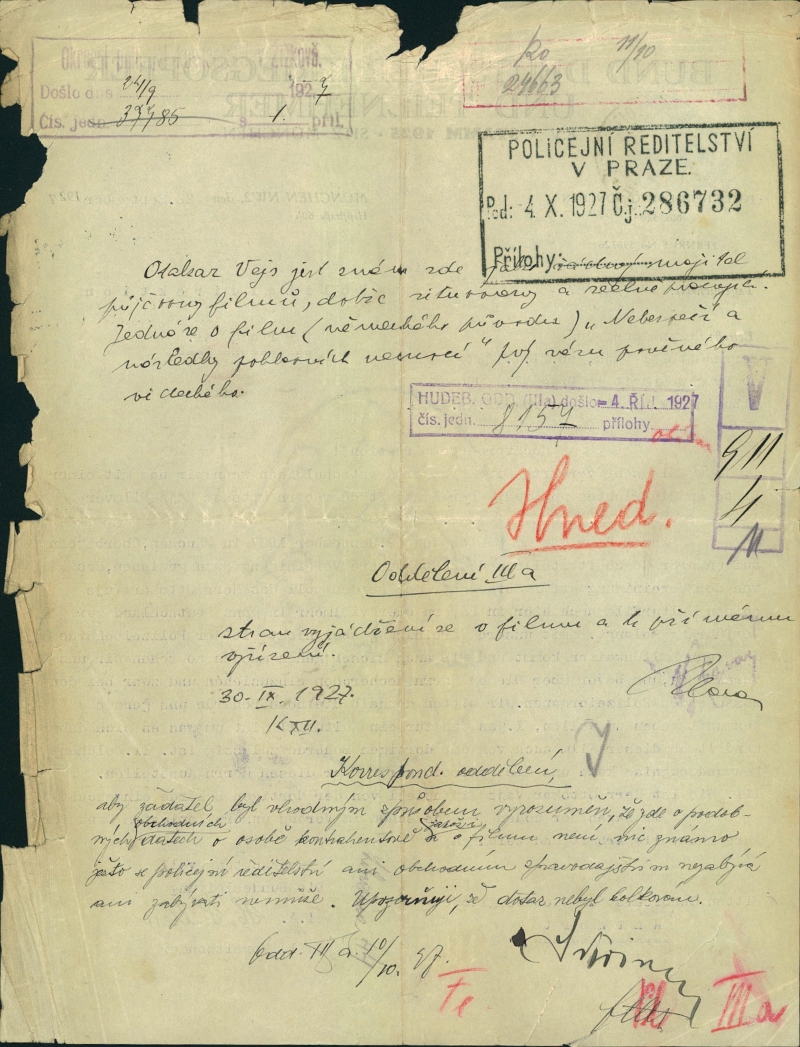 Došlo dne 24/9 1927
Čís. jedn. 39785 s 1. příl.
Ro 11/10
24663
POLICEJNÍ ŘEDITELSTVÍ
V PRAZE.
Pod: 4 X. 1927 Č.j. 286732
Přílohy:
Otakar Vejs jest znám zde majitel
půjčovny filmů, dobře situovaný a
Jedná se o film (německého původu) „Nebezpečí a
následky pohlavních nemocí"
HUDEB. ODD. (IIIa) došlo 4. ŘÍJ. 1927
čís. jedn. 8157 přílohy
V
911
4
11
Hned.
Oddělení III a
stran vyjádření se o filmu a k přímému
vyřízení.
30. IX. 1927.
K XII.
Korrespond. oddělení,
aby žadatel byl vhodným způsobem vyrozuměn, že zde o podob-
ných obchodních datech o osobě kontrahentově a o filmu není nic známo
ješto se policejní ředitelství ani obchodním zpravodajstvím nezabývá
ani zabývati nemůže. Upozorňuji, že dotaz nebyl kolkován.
Odd. III a. 10/10. 27.
III a